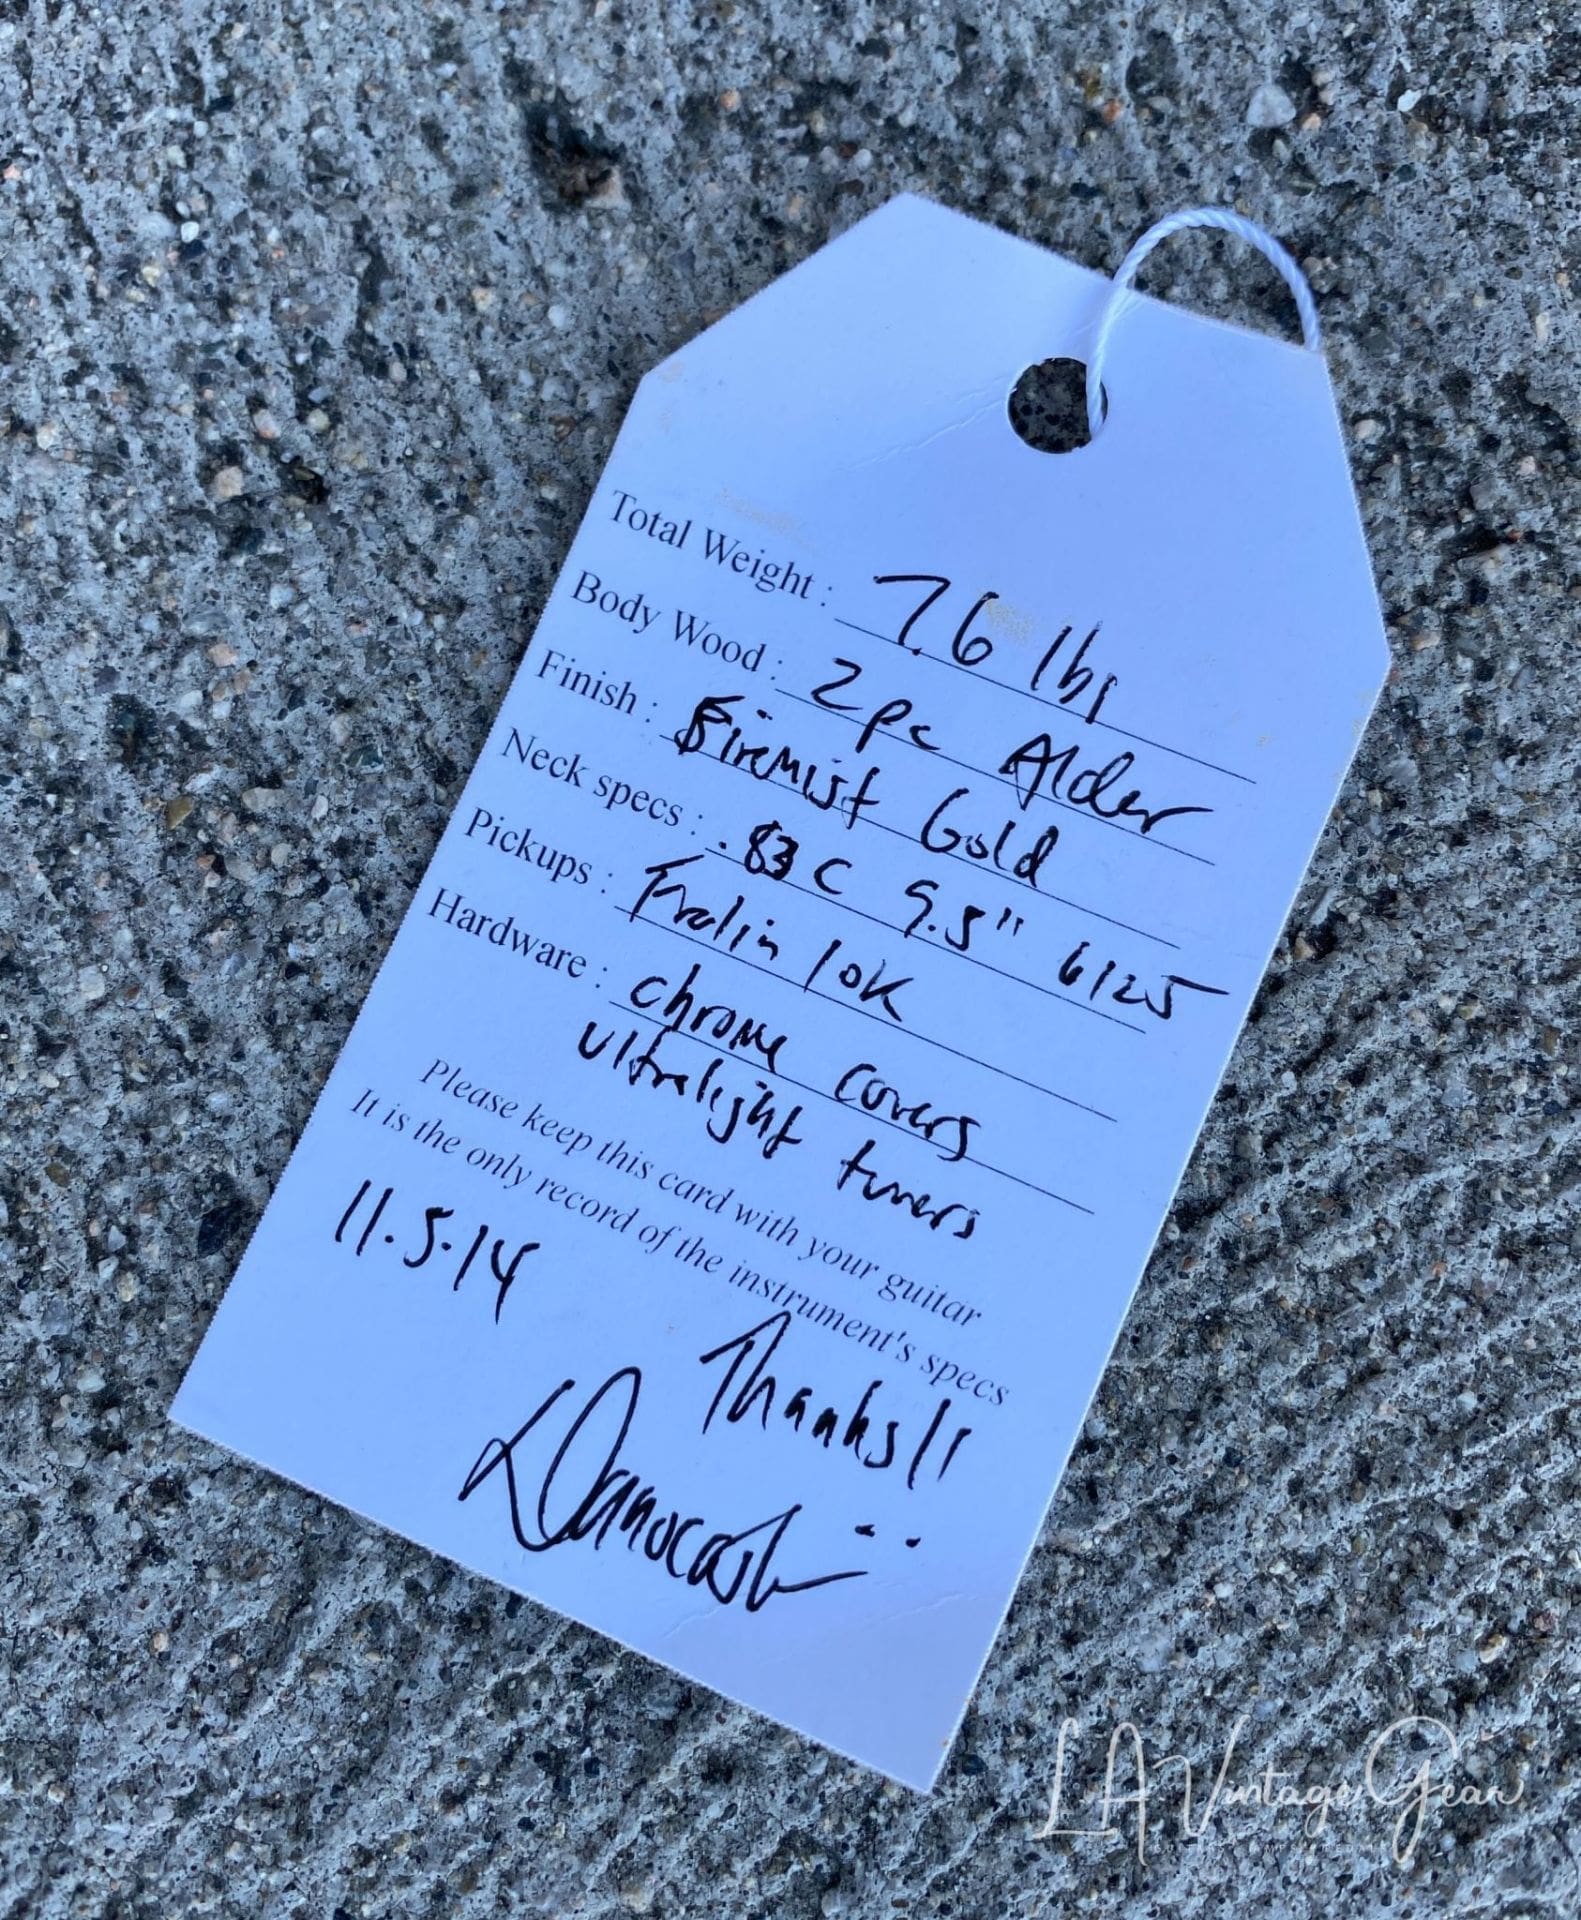 Total Weight : 7.6 lbs
Body Wood : 2 pc Alder
Finish : Firemist Gold
Neck specs : .83 C 9.5" 6125
Pickups : Fralin 10K
Hardware : chrome covers
ultralight tuners
Please keep this card with your guitar
It is the only record of the instrument's specs
11.5.14
Thanks!!
Danocaster
LA Vintage Gear